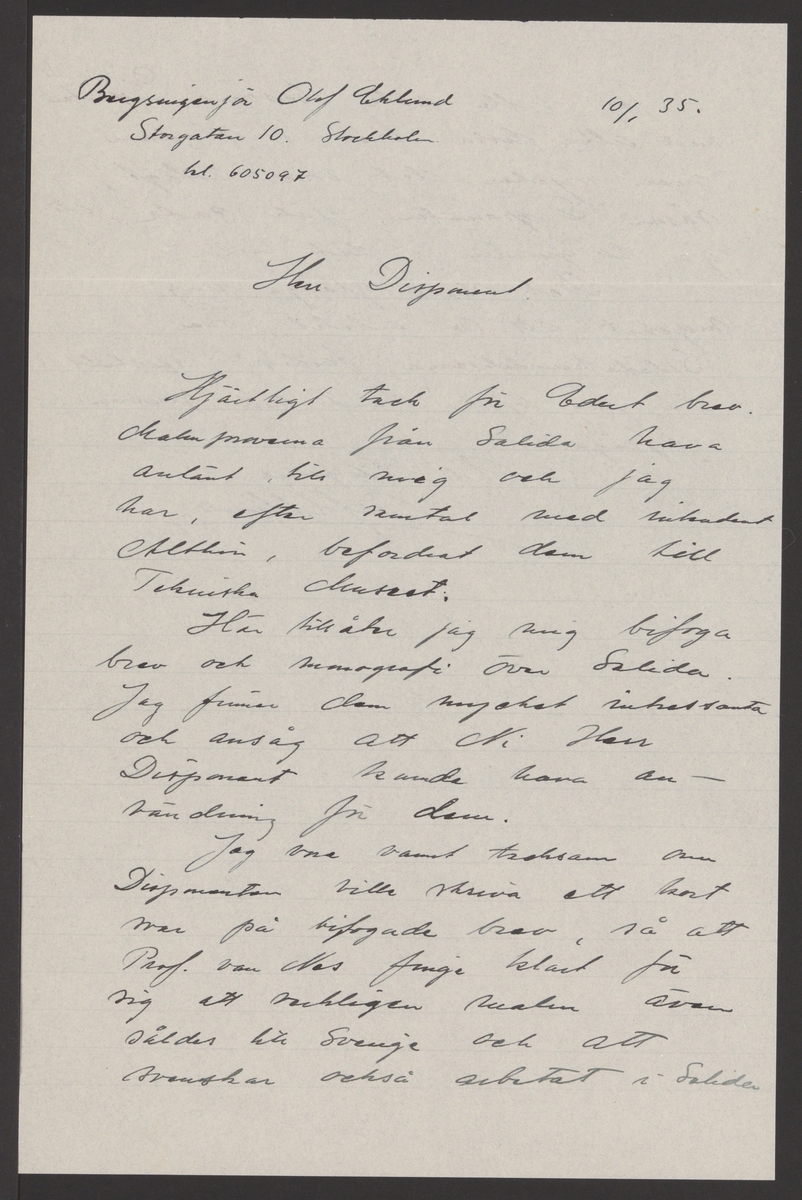 Bergsingenjör Olof Eklund 10/1 35.
Storgatan 10. Stockholm.
tel. 605097
Herr Disponent.
Hjärtligt tack för Edert brev.
Malmproverna från Salida hava
anlänt till mig och jag
har, efter samtal med intendent
Althin, befordrat dem till
Tekniska Museet.
Här tillåter jag mig bifoga
brev och monografi över Salida.
Jag finner dem mycket intressanta
och ansåg att Ni Herr
Disponent kunde hava an-
vändning för dem.
Jag vore varmt tacksam om
Disponenten ville skriva ett kort
svar på bifogade brev, så att
Prof. van Nes finge klart för
sig att verkligen malm även
såldes till Sverige och att
svenskar också arbetat i Salida